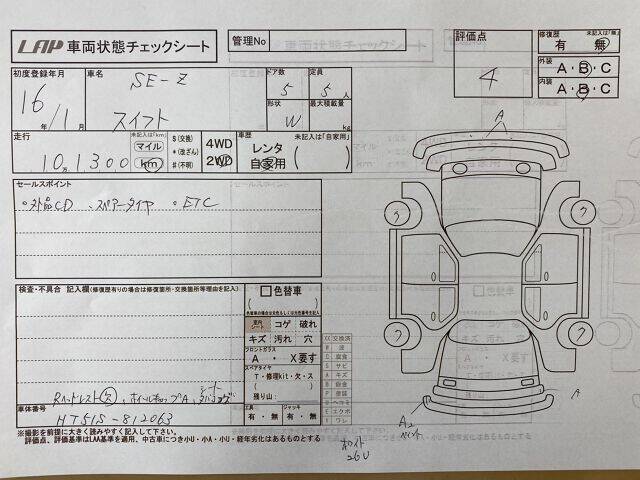 LAP 車両状態チェックシート
管理No
評価点
4
修復歴 未記入は「無」
有 ・ 無
外装
A・B・C
内装
A・B・C
初度登録年月
16年/1月
車名
SE-Z
スイフト
ドア数
5
定員
5人
形状
W
最大積載量
kg
走行
10万1300
未記入は「km」
マイル
km
$(交換)
*(改ざん)
#(不明)
4WD
2WD
車歴 未記入は「自家用」
レンタ
自家用
( )
セールスポイント
・外品CD ・スペアータイヤ ・ETC
検査・不具合 記入欄(修復歴有りの場合は修復箇所・交換箇所等理由を記入)
Rヘッドレスト欠、ホイールキャップA、
車体番号
HT51S-812063
色替車
( )
室内
シート
コゲ 破れ
キズ 汚れ 穴
フロントガラス
A ・ X要す
スペアタイヤ
T・修理kit・欠・ス
( )
残り山:
工具
有・無
ジャッキ
有・無
XX 交換済
W 波
C 腐食
S サビ
A キズ
B 鈑金
P 塗装
U ヘコミ
E エクボ
Y ワレ
A
A
A2
ペイント
ホワイト
26U
※撮影を前提に大きく読みやすく記入して下さい。
評価点、評価基準はLAA基準を適用、中古車につき小U・小A・小U・経年劣化はあるものとする